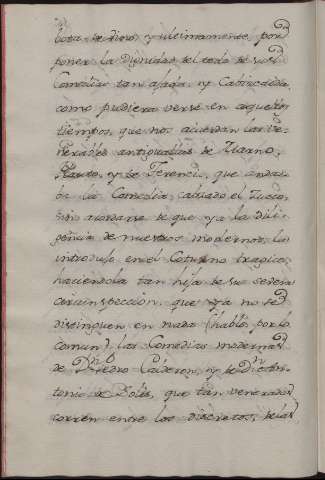 bota de dino, y ultimamente, por
poner la dignidad del todo de su
Comedia tan ajada, y Cabizcaida
como pudiera verse en aquellos
tiempos, que nos acuerdan las Ve-
nerables antiguallas de
Plauto, y de Terencio, que andaba
la Comedia, calzado el Zueco,
sin acordarse de que ya la dili-
gencia de nuestros modernos, la
introdujo en el Coturno tragico,
haciendola tan hija de su severa
circunspeccion, que ya no se
distinguen en nada (hablo por lo
comun) las Comedias modernas
de Dn. Pedro Calderon, y de Dn. An-
tonio de Solis, que tan venerados
corren entre los discretos, de las